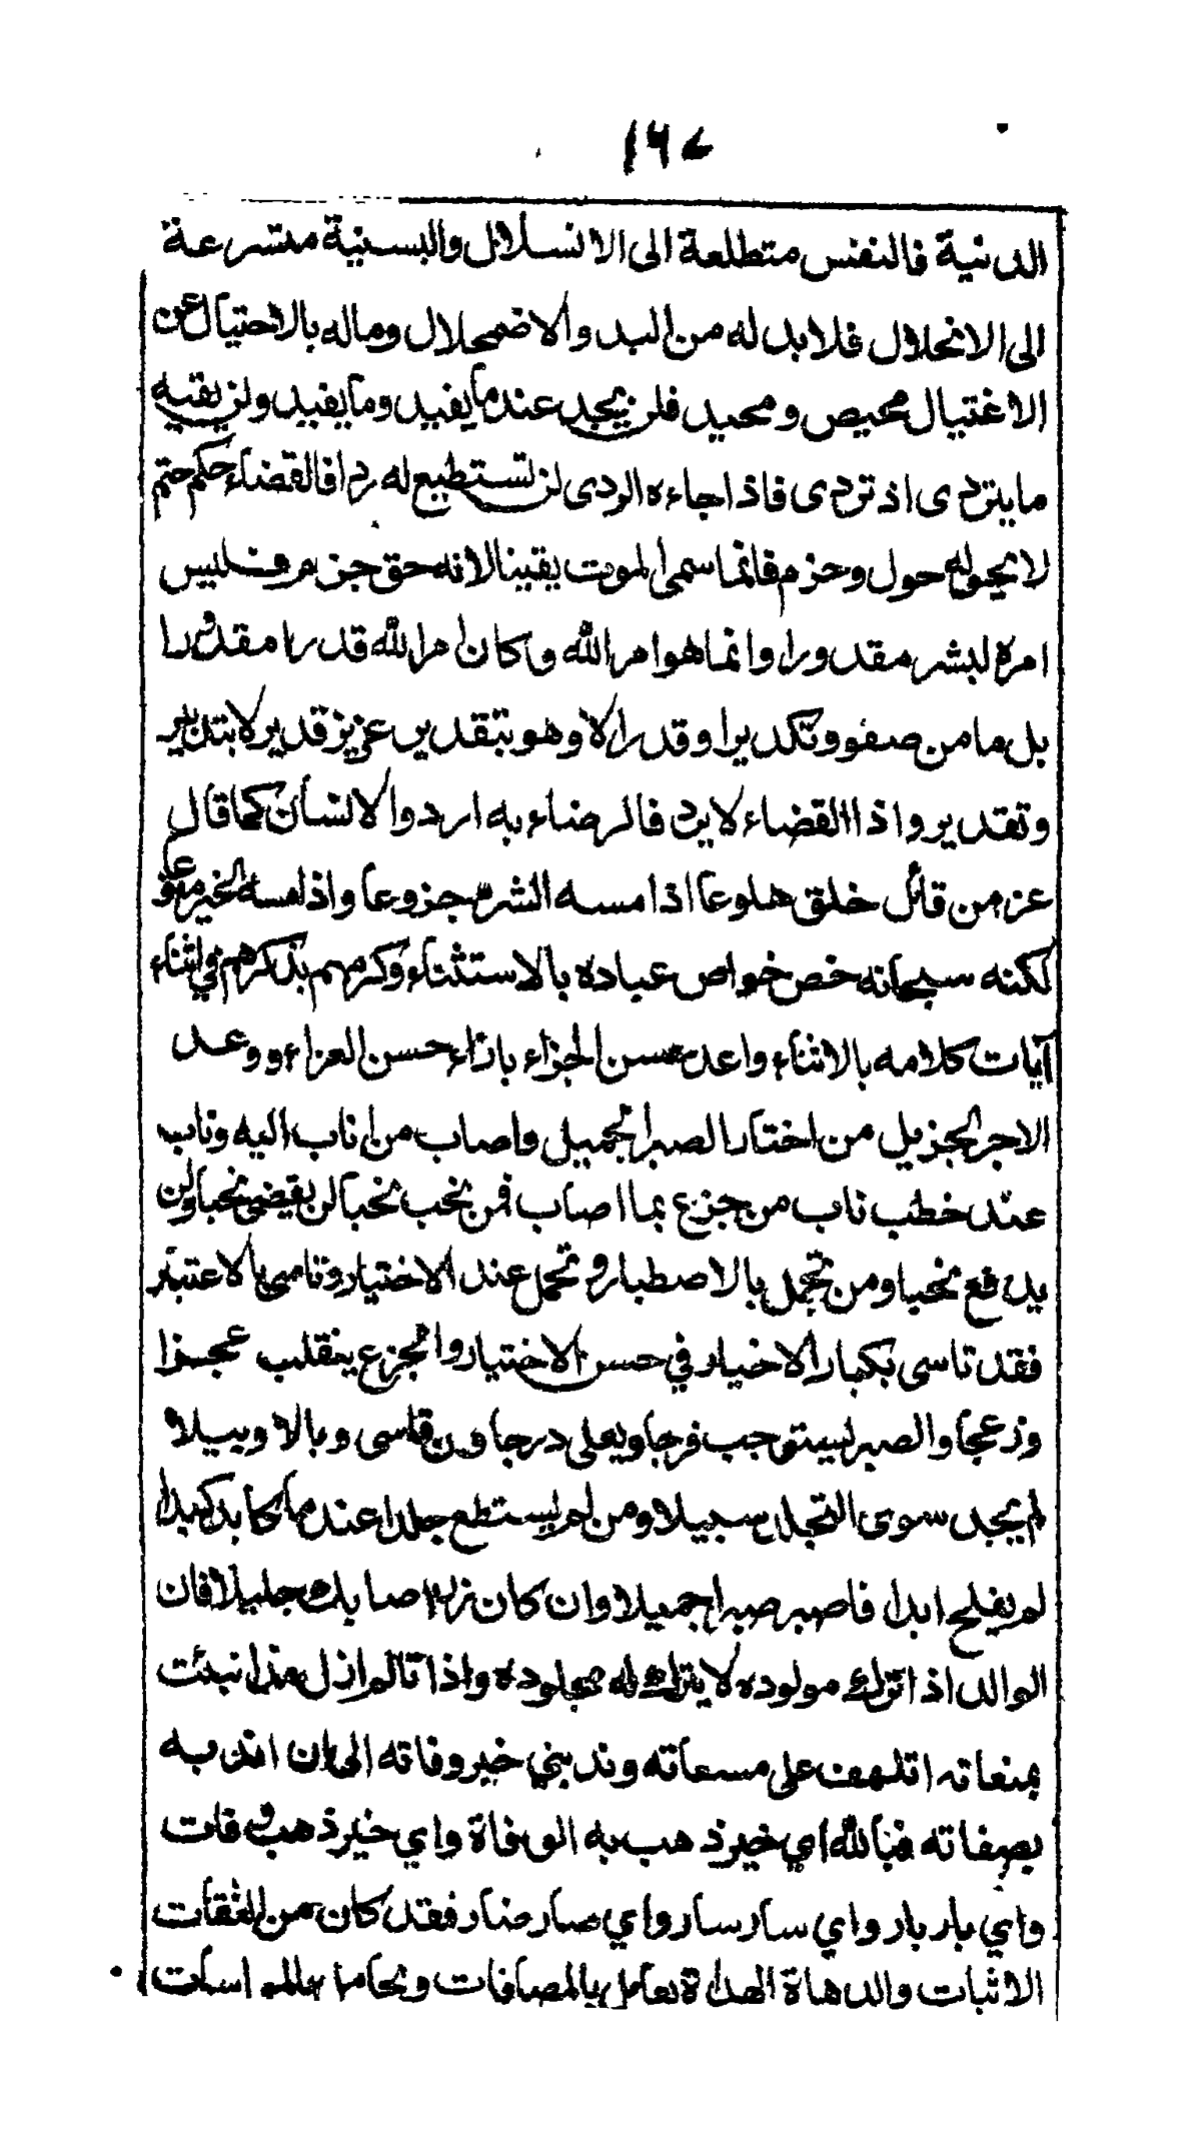 ١٦٧
الدنية فالنفس متطلعة الى الانسلال والبسنية متسرعة
الى الانحلال فلا بد له من البد والاضمحلال وماله بالاحتيال عن
الاغتيال محيص ومحيد فلن يجد عندما يفيد وما يفيد ولن يقيه
ما يتردى اذ تردى فاذا جاءه الردى لن تستطيع له ردا فالقضاء حكم حتم
لا يحوله حول وحزم فانما سمى الموت يقينا لانه حق جزم فليس
امره لبشر مقدورا وانما هو امر الله وكان امر الله قدرا مقدورا
بل ما من صفو وتكدير او قدر الا وهو بتقدير عزيز قدير لا بتدبير
وتقدير واذا القضاء لا يرد فالرضاء به ارد والانسان كما قال
عز من قائل خلق هلوعا اذا مسه الشر جزوعا واذا مسه الخير منوعا
لكنه سبحانه خص خواص عباده بالاستثناء وكرمهم بذكرهم في اثناء
آيات كلامه بالاثناء واعد حسن الجزاء بازاء حسن العزاء ووعد
الاجر الجزيل من اختار الصبر الجميل واصاب من اناب اليه وناب
عند خطب ناب من جزع بما اصاب فمن نخب نخبا لن يقضى نحبا ولن
يدفع نخبا ومن تجمل بالاصطبار وتحمل عند الاختيار وتاسى بالاعتبار
فقد تاسى بكبار الاخيار في حسن الاختيار والجزع ينقلب عجزا
وزعجا والصبر ليستوجب فرجا ويعلى درجا ومن قاسى وبالا وبيلا
لم يجد سوى التجمل سبيلا ومن لم يستطع جلدا عند ما كابد كبدا
لم يفلح ابدا فاصبر صبرا جميلا وان كان رزء اصابك جليلا فان
الوالد اذا ترك مولوده لا يترك له مجلوده واذا تالم ازل منذ انبئت
بمنعاته اتلهف على مسعاته وندبني خبر وفاته الى ان اندبه
بصفاته فبالله اي خير ذهب به الوفاة واي خير ذهب وفات
واي بار بار واي سار سار واي صار ضار فقد كان من الثقات
الاثبات والدهاة الهداة يعامل بالمصافات ويجامل بالمواسات